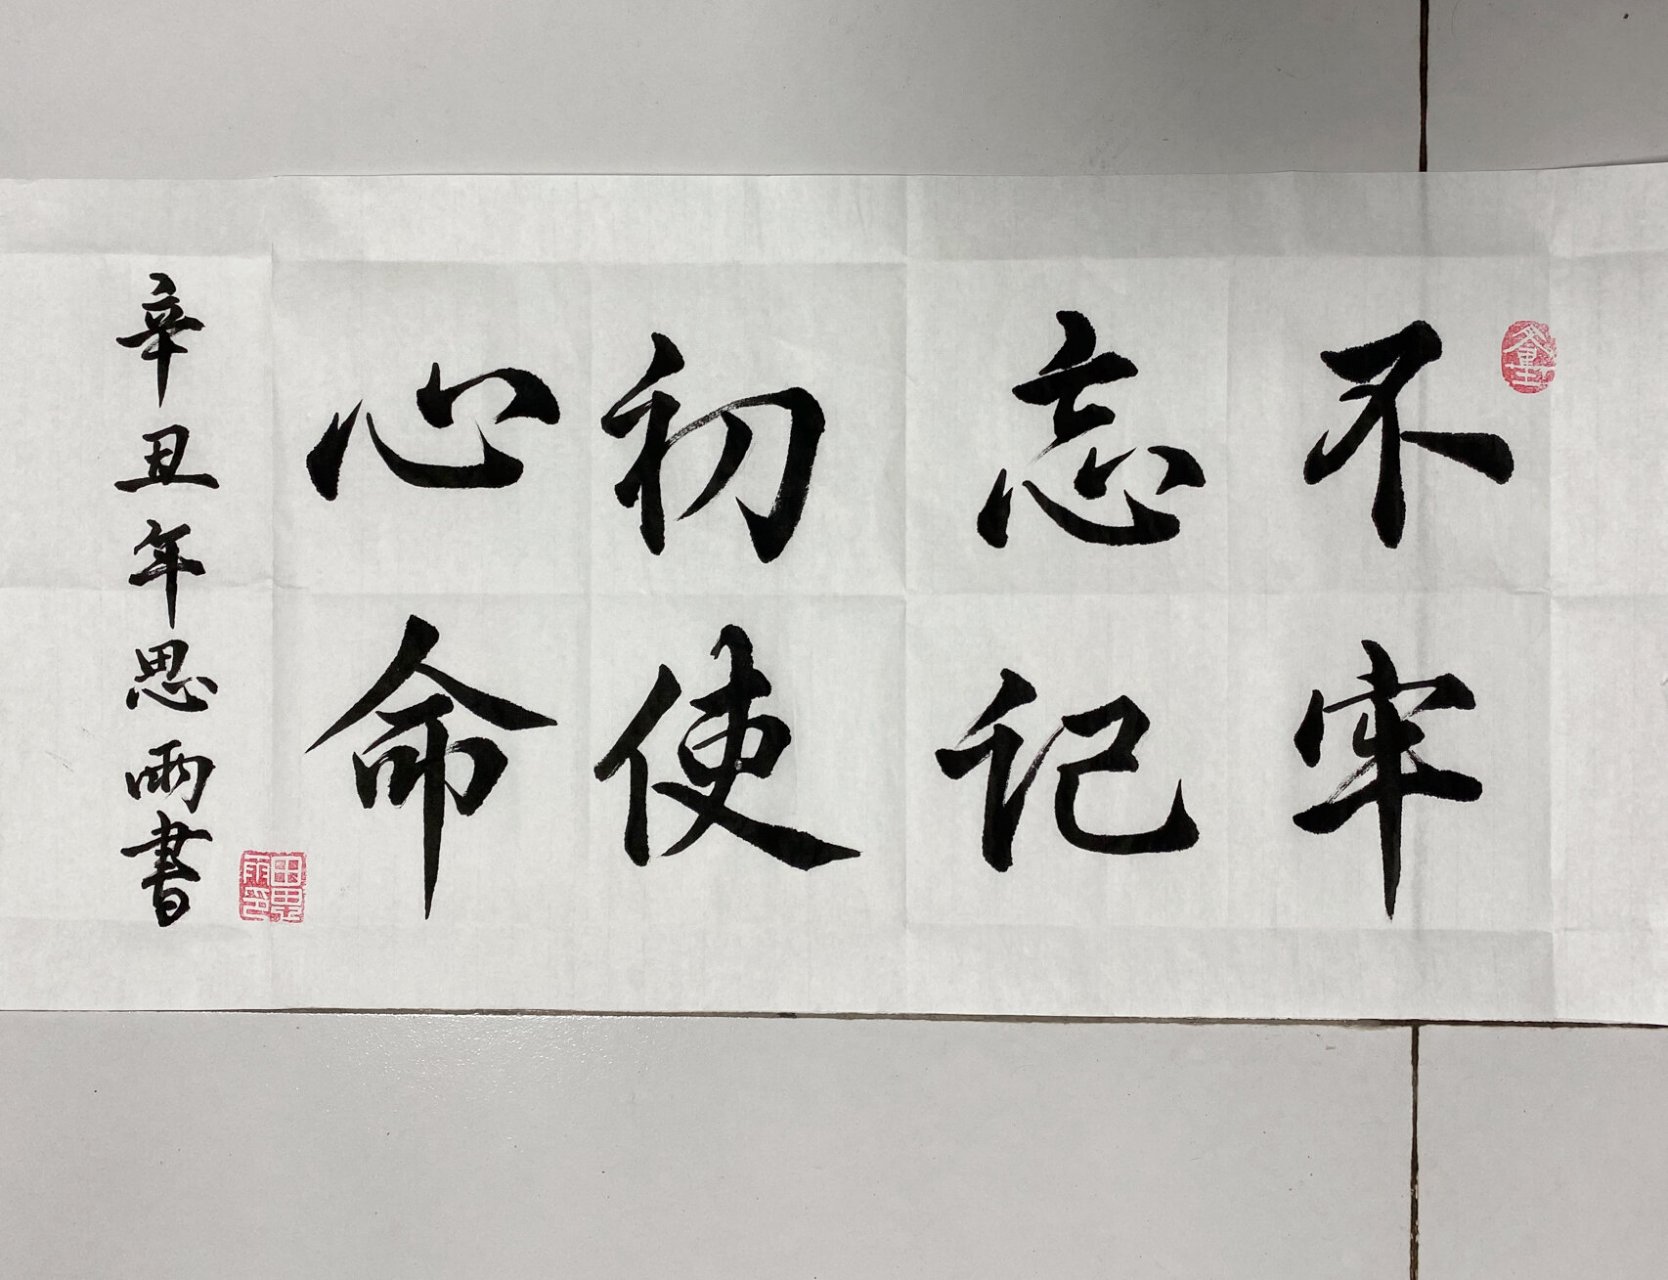 不忘初心
牢记使命
辛丑年思雨書
田思雨印